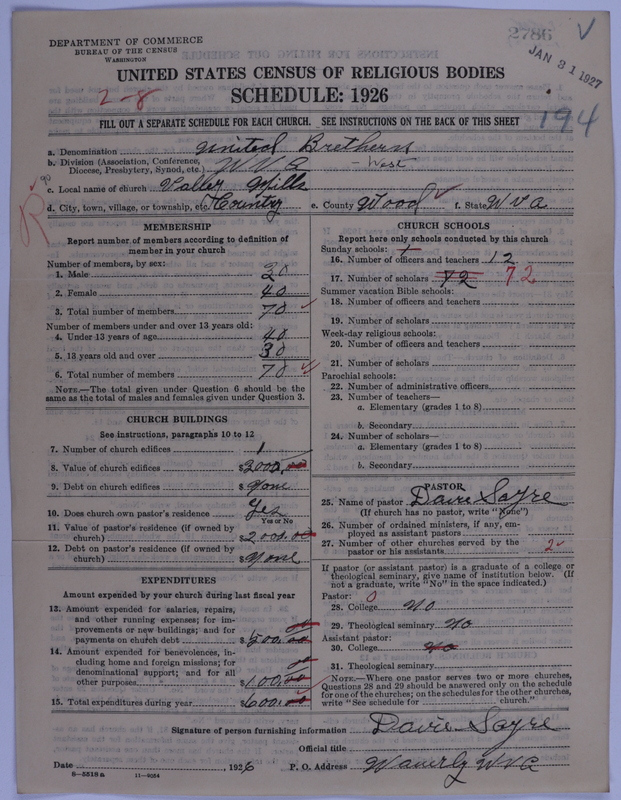 DEPARTMENT OF COMMERCE
BUREAU OF THE CENSUS
WASHINGTON
2786
JAN 31 1927
UNITED STATES CENSUS OF RELIGIOUS BODIES
2-8
SCHEDULE: 1926
194
FILL OUT A SEPARATE SCHEDULE FOR EACH CHURCH. SEE INSTRUCTIONS ON THE BACK OF THIS SHEET
a. Denomination United Brethern
b. Division (Association, Conference, Diocese, Presbytery, Synod, etc.) W V A - West
c. Local name of church Valley Mills
d. City, town, village, or township, etc. Country e. County Wood f. State W V A
MEMBERSHIP
Report number of members according to definition of
member in your church
Number of members, by sex:
1. Male 30
2. Female 40
3. Total number of members 70
Number of members under and over 13 years old:
4. Under 13 years of age 40
5. 13 years old and over 30
6. Total number of members 70
NOTE.—The total given under Question 6 should be
same as the total of males and females given under Question 3.
CHURCH BUILDINGS
See instructions, paragraphs 10 to 12
7. Number of church edifices 1
8. Value of church edifices $3000.00
9. Debt on church edifices $None
10. Does church own pastor's residence Yes
Yes or No
11. Value of pastor's residence (if owned by
church) $2000.00
12. Debt on pastor's residence (if owned by
church) $None
EXPENDITURES
Amount expended by your church during last fiscal year
13. Amount expended for salaries, repairs,
and other running expenses; for im-
provements or new buildings; and for
payments on church debt $500.00
14. Amount expended for benevolences, in-
cluding home and foreign missions; for
denominational support; and for all
other purposes $100.00
15. Total expenditures during year $600.00
CHURCH SCHOOLS
Report here only schools conducted by this church
Sunday schools: 1
16. Number of officers and teachers 12
17. Number of scholars 72 72
Summer vacation Bible schools:
18. Number of officers and teachers
19. Number of scholars
Week-day religious schools:
20. Number of officers and teachers
21. Number of scholars
Parochial schools:
22. Number of administrative officers
23. Number of teachers—
a. Elementary (grades 1 to 8)
b. Secondary
24. Number of scholars—
a. Elementary (grades 1 to 8)
b. Secondary
PASTOR
25. Name of pastor Davie Sayre
(If church has no pastor, write "None")
26. Number of ordained ministers, if any, em-
ployed as assistant pastors
27. Number of other churches served by the
pastor or his assistants 2
If pastor (or assistant pastor) is a graduate of a college or
theological seminary, give name of institution below. (If
not a graduate, write "No" in the space indicated.)
Pastor: 0
28. College No
29. Theological seminary No
Assistant pastor:
30. College No
31. Theological seminary
NOTE.—Where one pastor serves two or more churches,
Questions 28 and 29 should be answered only on the schedule
for one of the churches; on the schedules for the other churches,
write "See schedule for church."
Signature of person furnishing information Davie Sayre
Official title
Date , 1926 P. O. Address Waverly W V A
8—5518a 11—9064